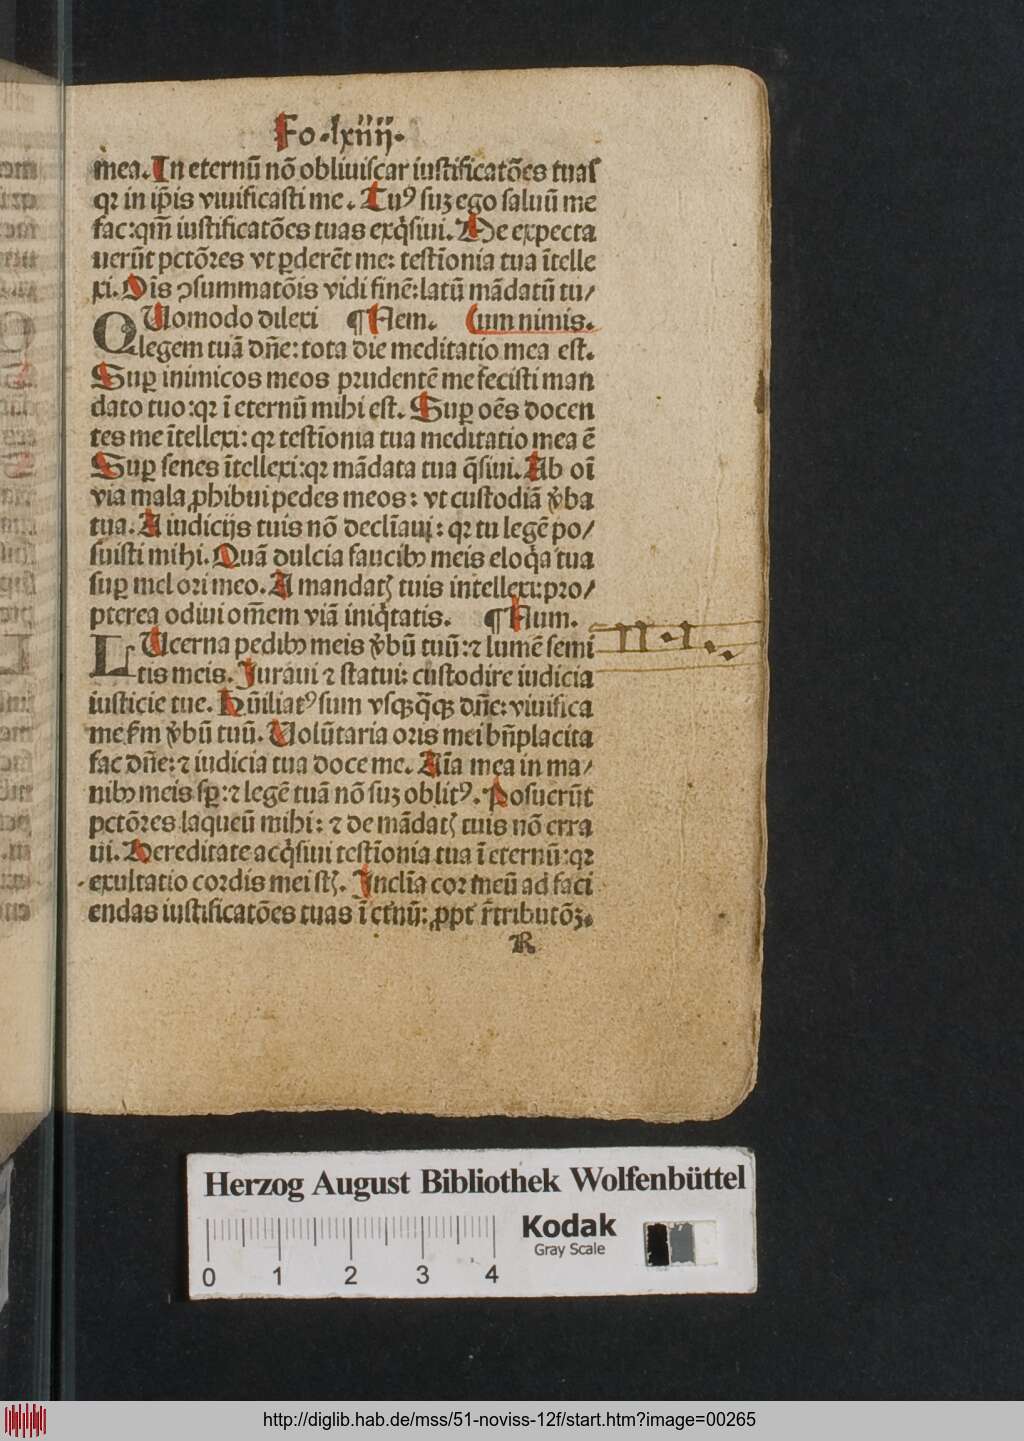 Fo·lxiiij·
mea. In eternū nō obliuiscar iustificatōes tuas
qꝛ in ip̄is viuificasti me. Tuꝰ suꝫ ego saluū me
fac: qm̄ iustificatōes tuas exq̇siui. Me expecta
uerūt pctōꝛes vt ꝑderēt me: testīonia tua ītelle
xi. Oīs ꝯsummatōis vidi finē: latū mādatū tu/
QUomodo dilexi ¶ Mem. Cum nimis.
legem tuā dn̄e: tota die meditatio mea est.
Suꝑ inimicos meos pꝛudentē me fecisti man
dato tuo: qꝛ ī eternū mihi est. Suꝑ oēs docen
tes me ītellexi: qꝛ testīonia tua meditatio mea ē
Suꝑ senes ītellexi: qꝛ mādata tua q̄siui. Ab oī
via mala ꝓhibui pedes meos: vt custodiā v̾ba
tua. A iudicijs tuis nō declīaui: qꝛ tu legē po/
suisti mihi. Quā dulcia faucibꝰ meis eloq̇a tua
suꝑ mel ori meo. A mandatꝭ tuis intellexi: pꝛo/
pterea odiui om̄em viā iniq̇tatis. ¶ Num.
LUcerna pedibꝰ meis v̾bū tuū: ⁊ lumē semi
tis meis. Iuraui ⁊ statui: custodire iudicia
iusticie tue. Hūiliatꝰ sum vsqꝫq̄qꝫ dn̄e: viuifica
me ẜm v̾bū tuū. Uolūtaria oꝛis mei bn̄placita
fac dn̄e: ⁊ iudicia tua doce me. Aīa mea in ma/
nibꝰ meis sꝑ: ⁊ legē tuā nō suꝫ oblitꝰ. Posuerūt
pctōꝛes laqueū mihi: ⁊ de mādatꝭ tuis nō erra
ui. Hereditate acq̇siui testīonia tua ī eternū: qꝛ
exultatio coꝛdis mei sꝭt. Inclīa coꝛ meū ad faci
endas iustificatōes tuas ī et̾nū: ꝓpt̾ r̄tributōꝫ.
R
Herzog August Bibliothek Wolfenbüttel
Kodak
Gray Scale
0 1 2 3 4
http://diglib.hab.de/mss/51-noviss-12f/start.htm?image=00265